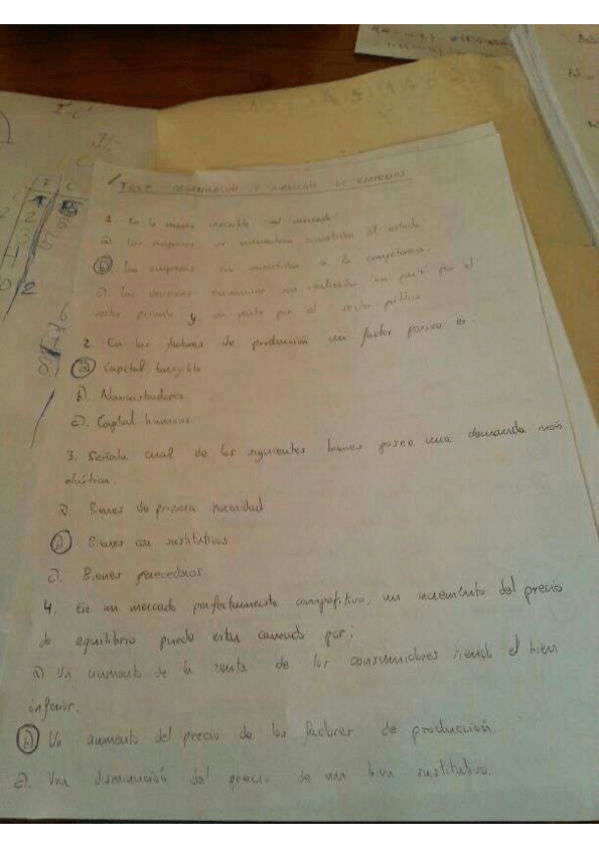 TEST ORGANIZACIÓN Y DE EMPRESAS
1. En la mano invisible del mercado
a). Las empresas se encuentran sometidas al estado
b). Las empresas se a la competencia.
c). Las decisiones económicas son realizadas en parte por el
sector privado y en parte por el sector público
2. En los factores de producción un factor pasivo es.
a). Capital tangible
b). Administradores
c). Capital humano
3. Señala cual de los siguientes bienes posee una demanda más
elástica.
a. Bienes de primera necesidad
b. Bienes con sustitutivos
c). Bienes perecederos
4. En un mercado perfectamente competitivo, un incremento del precio
de equilibrio puede estar causado por:
a) Un aumento de la renta de los consumidores siendo el bien
inferior.
b) Un aumento del precio de los factores de producción.
c). Una disminución del precio de un bien sustitutivo.